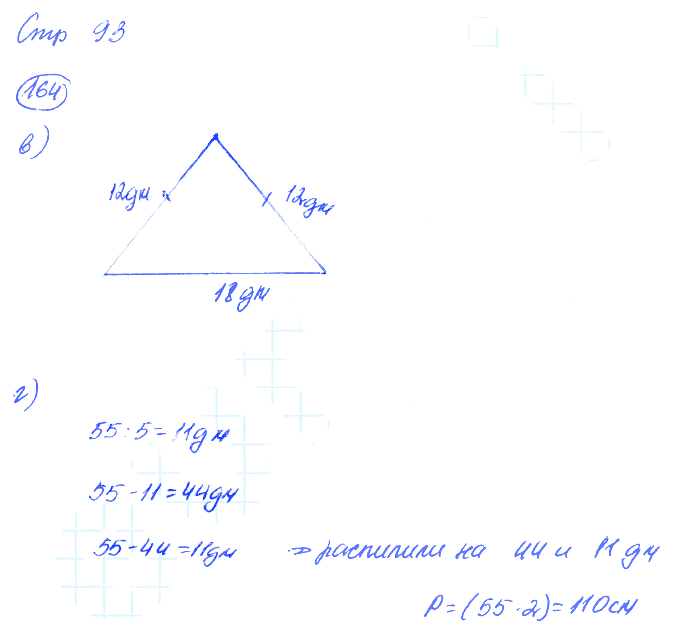 Стр 93
164
в)
12дм 12дм
18дм
г)
55:5=11дм
55-11=44дм
55-44=11дм => распилили на 44 и 11 дм
P=(55·2)=110см